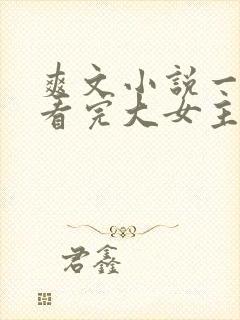 爽文小说一
看完大女主
君鑫